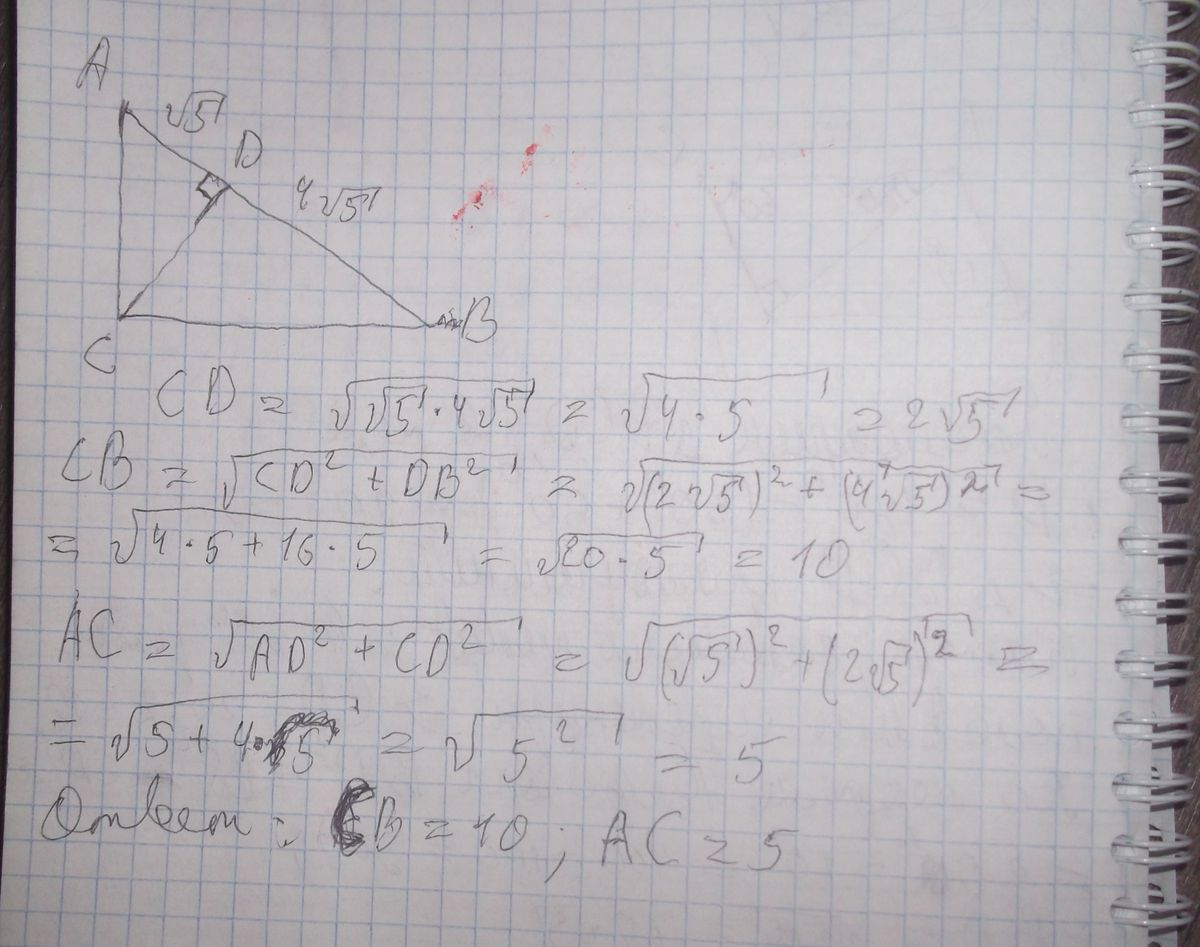 A
√5
D
4√5
B
C
CD = √(√5 · 4√5) = √(4 · 5) = 2√5
CB = √(CD² + DB²) = √((2√5)² + (4√5)²) =
= √(4 · 5 + 16 · 5) = √(20 · 5) = 10
AC = √(AD² + CD²) = √((√5)² + (2√5)²) =
= √(5 + 4 · 5) = √(5²) = 5
Ответ: CB = 10; AC = 5